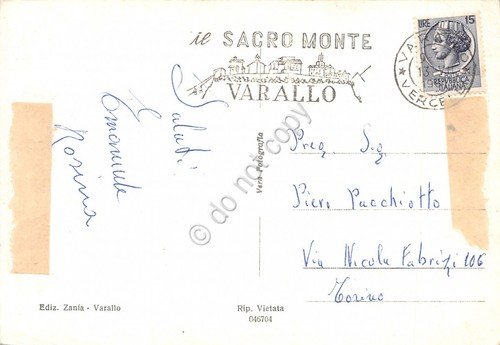 il SACRO MONTE
VARALLO
LIRE 15
VERCELLI
Saluti
Emanuele
Rosina
Preg. Sig.
Piero Pacchiotto
Via Nicola Fabrizi 106
Torino
Vera Fotografia
do not copy
Ediz. Zanfa - Varallo
Rip. Vietata
046704